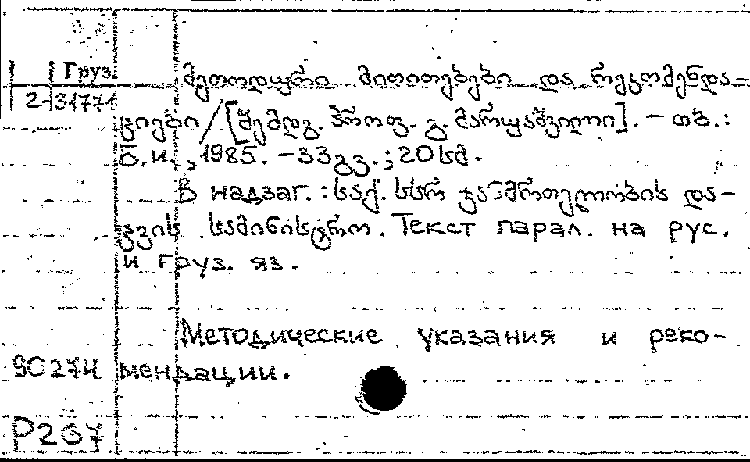 Груз.
2-31771
მეთოდური მითითებები და რეკომენდა-
ციები/[შემდგ. პროფ. გ. მარუაშვილი]. – თბ.:
Б.и., 1985. – 33გვ.; 20სმ.
В надзаг.: საქ. სსრ ჯანმრთელობის და-
ცვის სამინისტრო. Текст парал. на рус.
и груз. яз.
Методические указания и реко-
мендации.
9С274
Р267